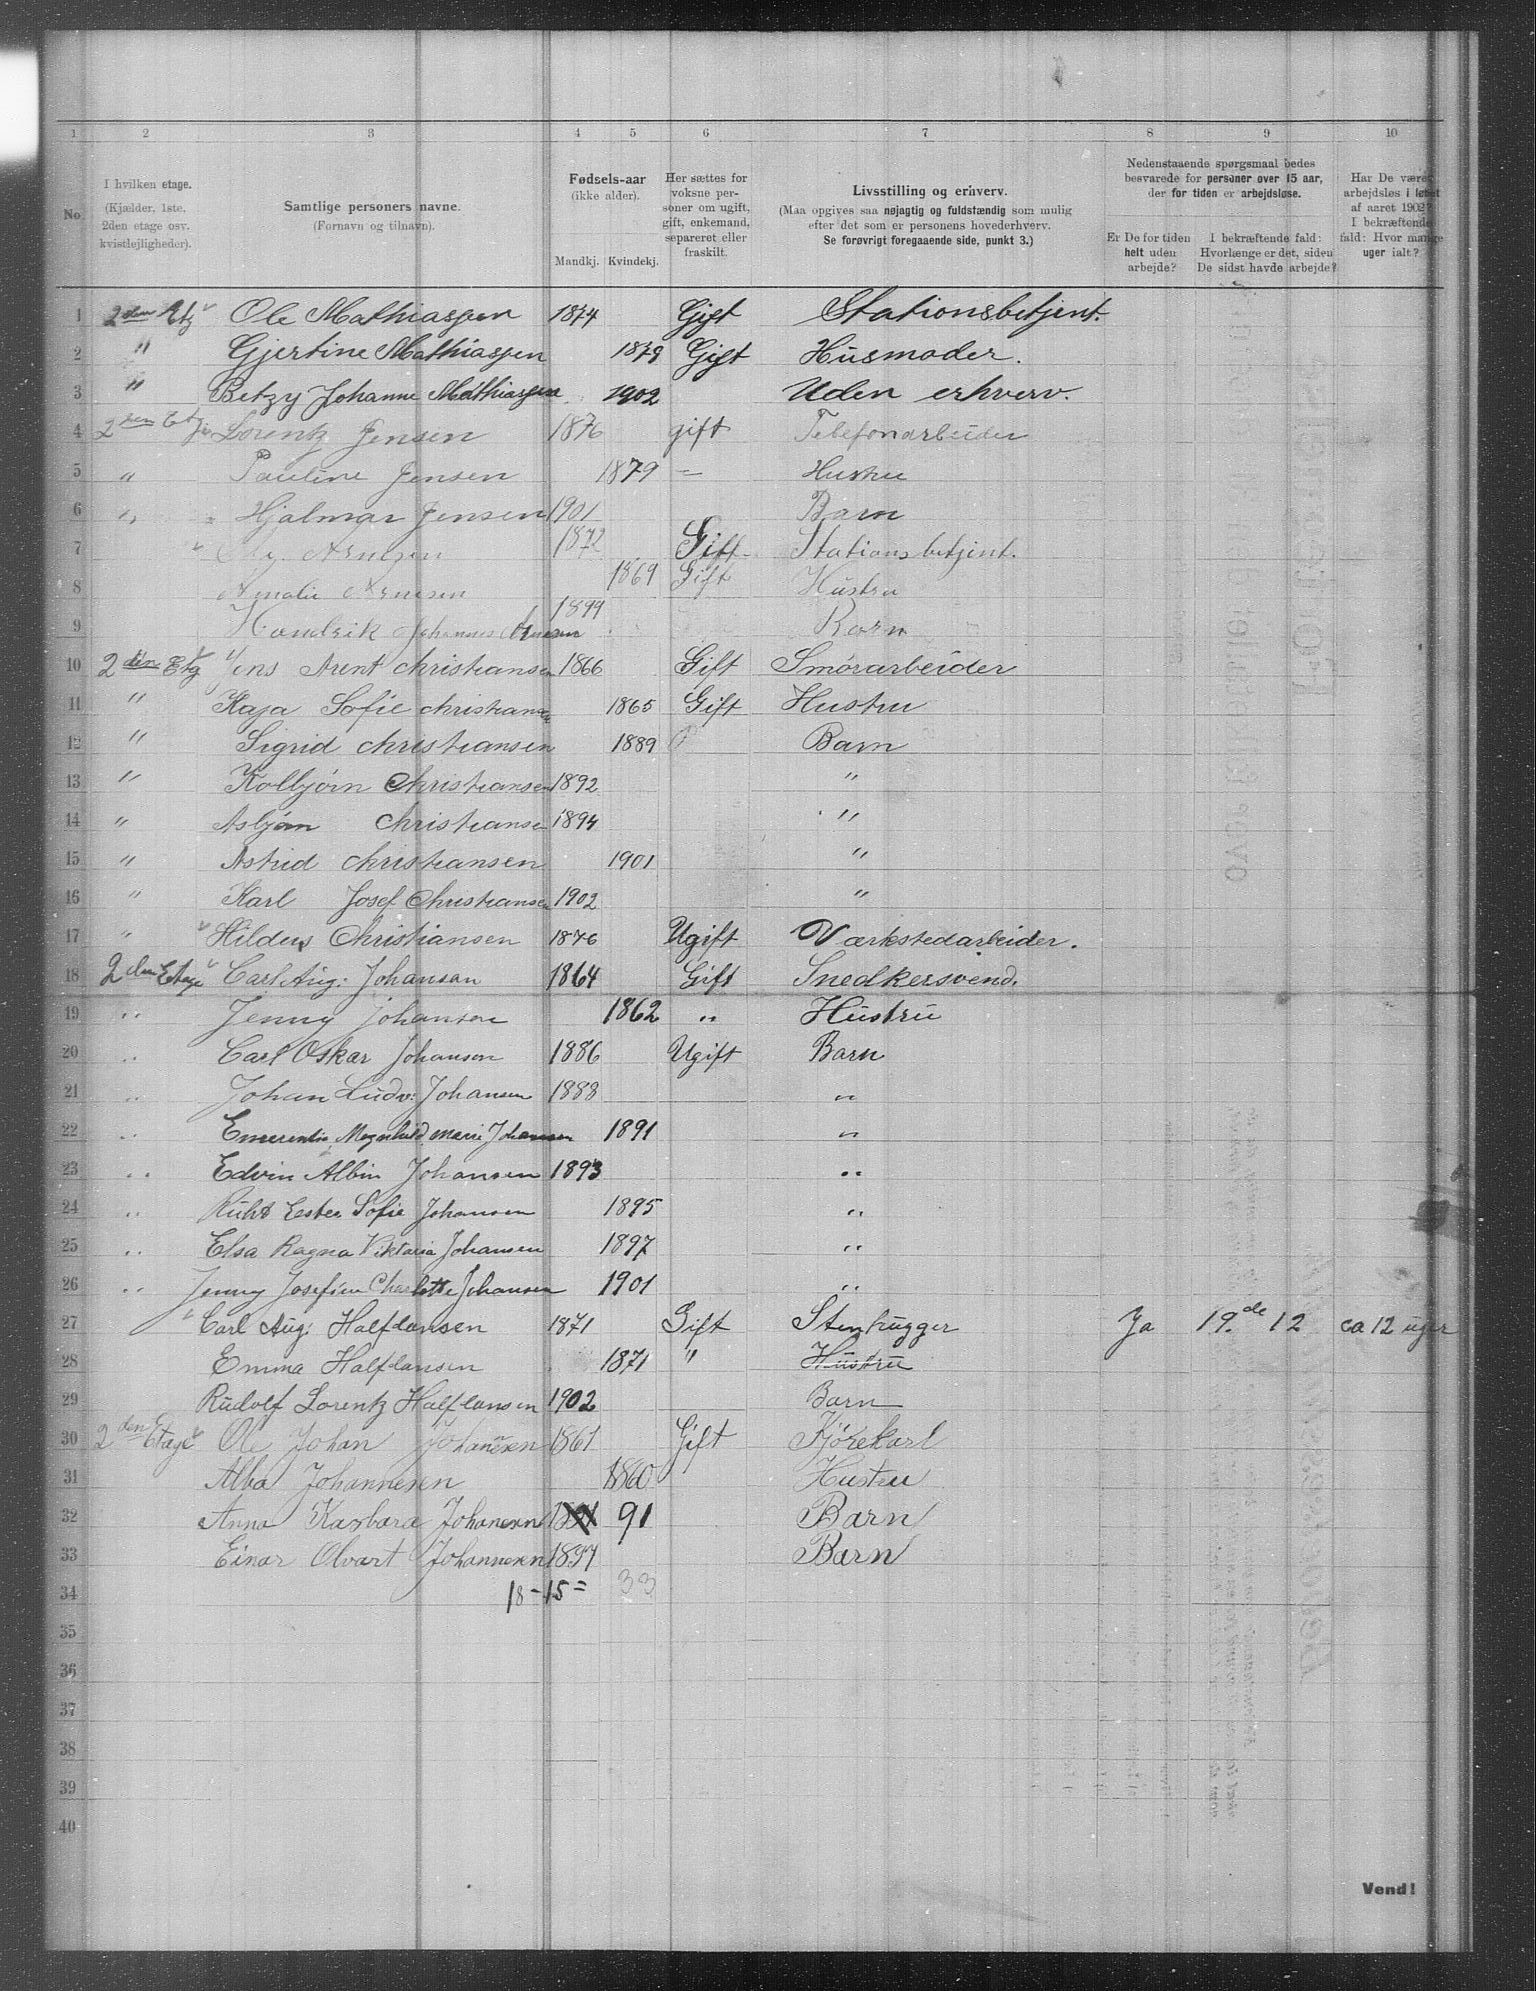 1 2 3 4 5 6 7 8 9 10
No.
I hvilken etage.
(Kjælder, 1ste, 2den etage osv. kvistlejligheder).
Samtlige personers navne.
(Fornavn og tilnavn).
Fødsels-aar
(ikke alder).
Mandkj. Kvindekj.
Her sættes for voksne personer om ugift, gift, enkemand, separeret eller fraskilt.
Livsstilling og erhverv.
(Maa opgives saa nøjagtig og fuldstændig som mulig efter det som er personens hovederhverv.
Se forøvrigt foregaaende side, punkt 3.)
Nedenstaaende spørgsmaal bedes besvarede for personer over 15 aar, der for tiden er arbejdsløse.
Er De for tiden helt uden arbejde?
I bekræftende fald: Hvorlænge er det, siden De sidst havde arbejde?
Har De været arbejdsløs i løbet af aaret 1902? I bekræftende fald: Hvor mange uger ialt?
1 2den Etg Ole Mathiassen 1874 Gift Stationsbetjent.
2 " Gjertine Mathiassen 1879 Gift Husmoder.
3 " Betzy Johanne Mathiassen 1902 Uden erhverv.
4 2den Etg Lorentz Jensen 1876 gift Telefonarbeider
5 " Pauline Jensen 1879 - Hustru
6 " Hjalmar Jensen 1901 Barn
7 Arntzen 1872 Gift Stationsbetjent.
8 Amalie Arntsen 1869 Gift Hustru
9 Hendrik Johannes Arntsen 1899 Barn
10 2den Etg Jens Arent Christiansen 1866 Gift Smørarbeider
11 " Kaja Sofie Christiansen 1865 Gift Hustru
12 " Sigrid Christiansen 1889 Barn
13 " Kolbjörn Christiansen 1892 "
14 " Asbjörn Christiansen 1894 "
15 " Astrid Christiansen 1901 "
16 " Karl Josef Christiansen 1902 "
17 " Christiansen 1876 Ugift Værkstedarbeider.
18 2den Etage Carl Aug: Johansen 1864 Gift Snedkersvend.
19 " Jenny Johansen 1862 " Hustru
20 " Carl Oskar Johansen 1886 Ugift Barn
21 " Johan Ludv: Johansen 1888 "
22 " Emerentia Magnhild Marie Johansen 1891 "
23 " Edvin Albin Johansen 1893 "
24 " Ruht Ester Sofie Johansen 1895 "
25 " Elsa Ragna Viktoria Johansen 1897 "
26 " Jenny Josefine Charlotte Johansen 1901 "
27 Carl Aug: Halfdansen 1871 Gift Stenhugger Ja 19.de 12 ca 12 uger
28 Emma Halfdansen 1871 " Hustru
29 Rudolf Lorentz Halfdansen 1902 Barn
30 2den Etage Ole Johan Johannesen 1861 Gift Kjørekarl
31 Alba Johannesen 1860 Hustru
32 Anna Kasbara Johannesen 91 Barn
33 Einar Olvart Johannesen 1897 Barn
34 18-15= 33
35
36
37
38
39
40
Vend!